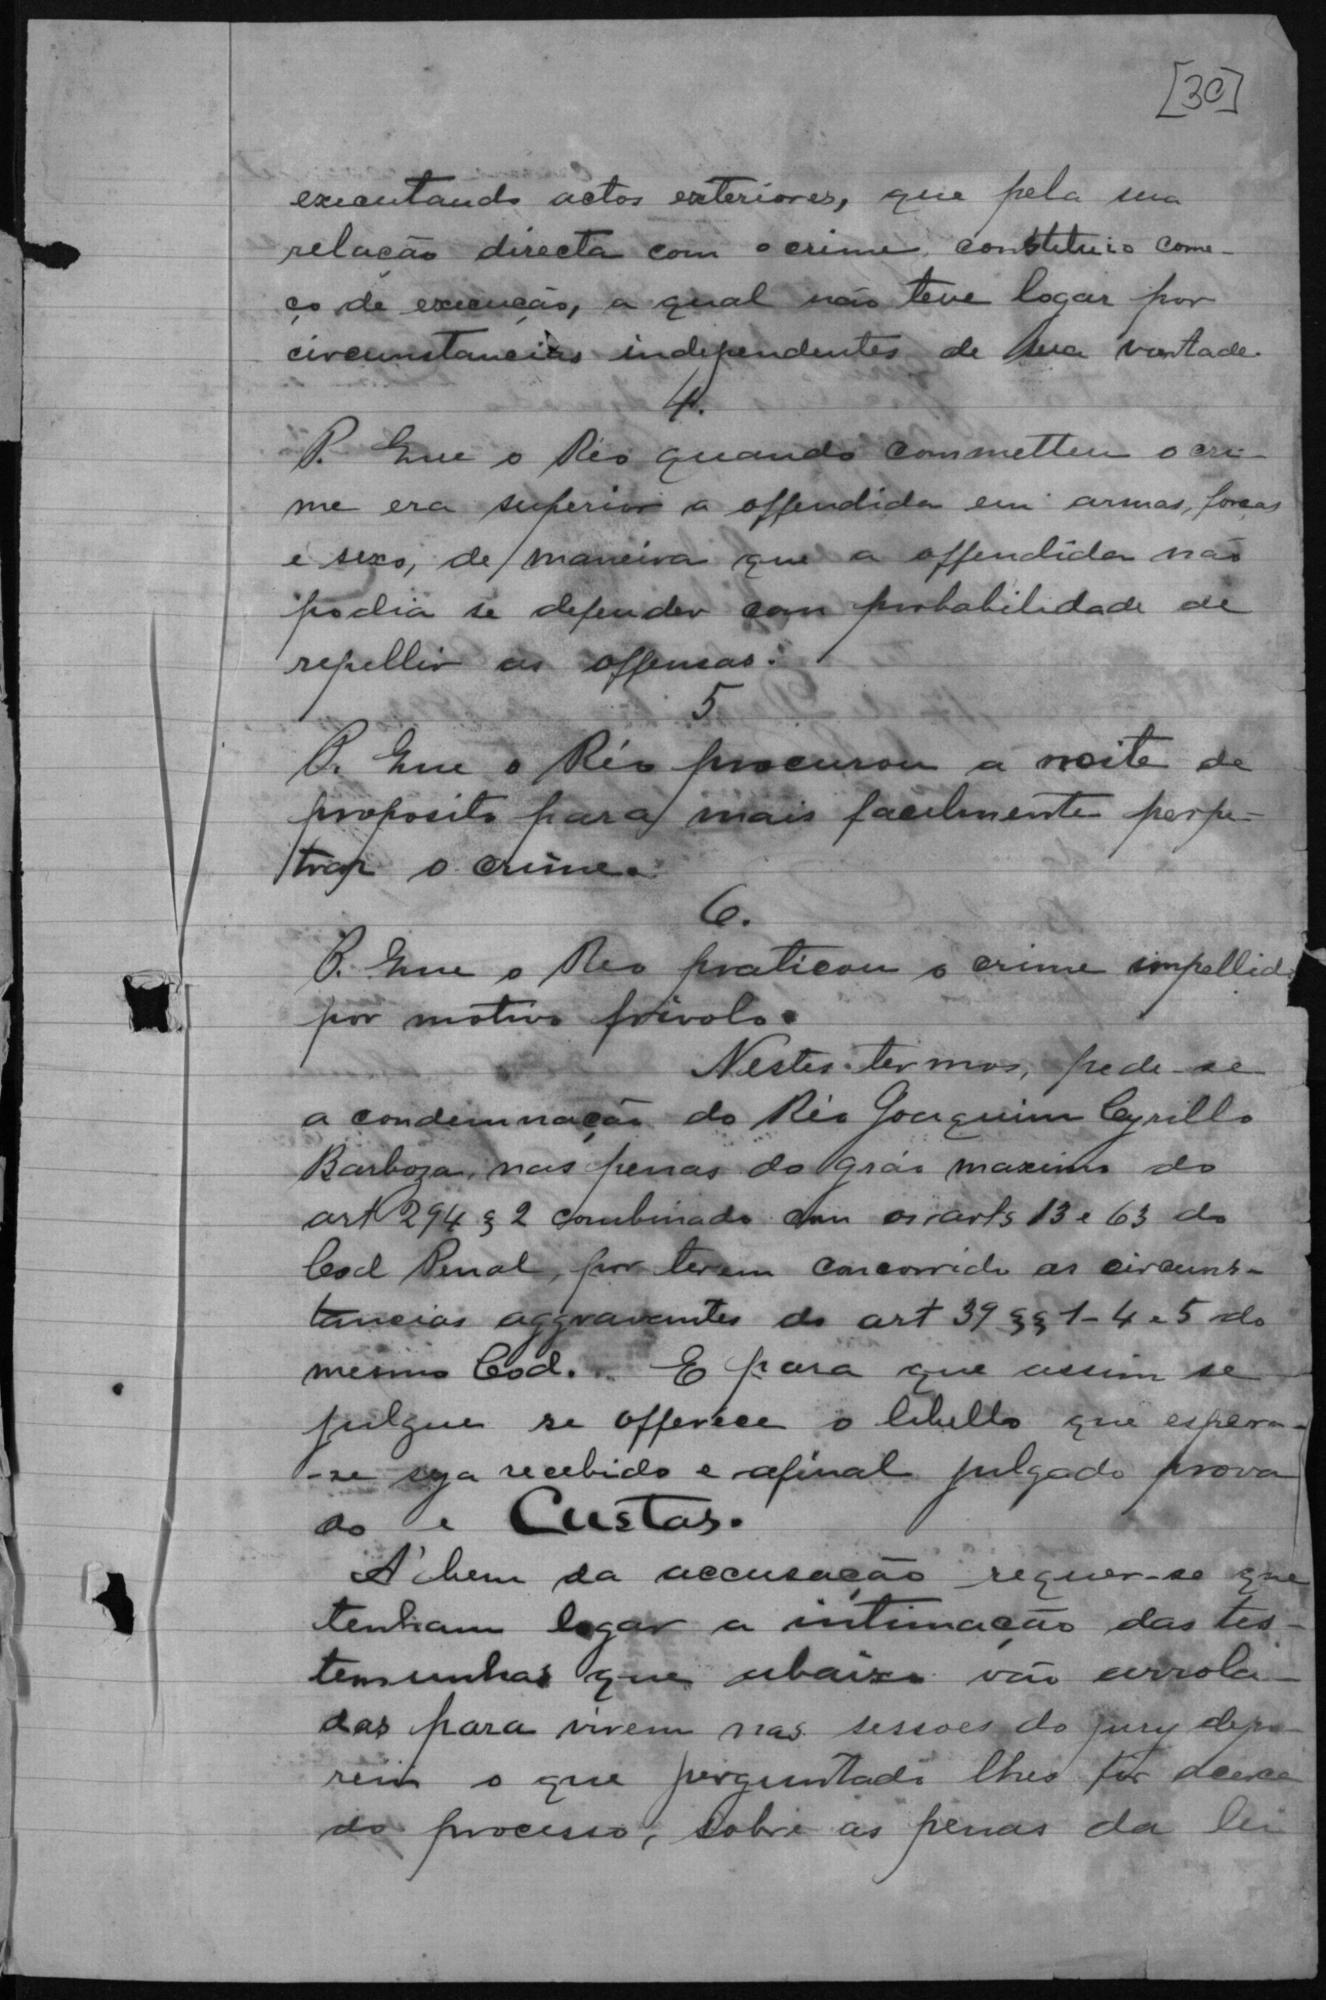 [30]
executando actos exteriores, que pela sua
relação directa com o crime, constituio come-
ço de execução, a qual não teve logar por
circumstancias independentes de sua vontade.
4.
P. Que o Réo quando commetteu o cri-
me era superior a offendida em armas, forças
e sexo, de maneira que a offendida não
podia se defender com probabilidade de
repellir as offensas.
5
P. Que o Réo procurou a noite de
proposito para mais facilmente perpe-
trar o crime.
6.
P. Que o Reo praticou o crime impellido
por motivo frivolo.
Nestes termos, pede-se
a condemnação do Réo Joaquim Cyrillo
Barboza, nas penas do gráo maximo do
art 294 § 2 combinado com os arts 13 e 63 do
Cod Penal, por terem concorrido as circums-
tancias aggravantes do art 39 §§ 1 - 4 e 5 do
mesmo Cod. E para que assim se
julgue se offerece o libello que espera-
-se seja recebido e afinal julgado prova
do e Custas.
A' bem da accusação requer-se que
tenham logar a intimação das tes-
temunhas que abaixo vão arrola-
das para virem nas sessoes do jury depo-
rem o que perguntado lhes for acerca
do processo, sobre as penas da lei